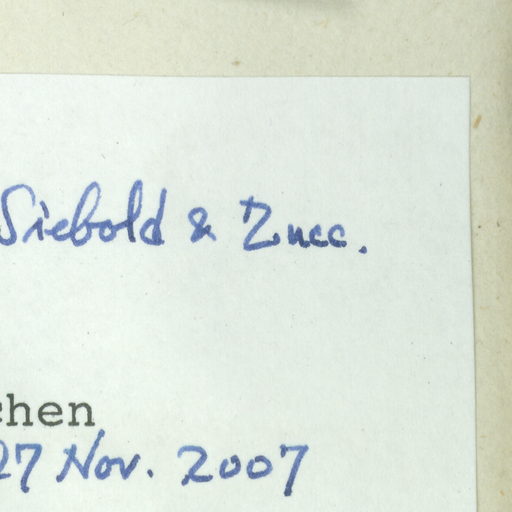 Siebold & Zucc.
chen
27 Nov. 2007